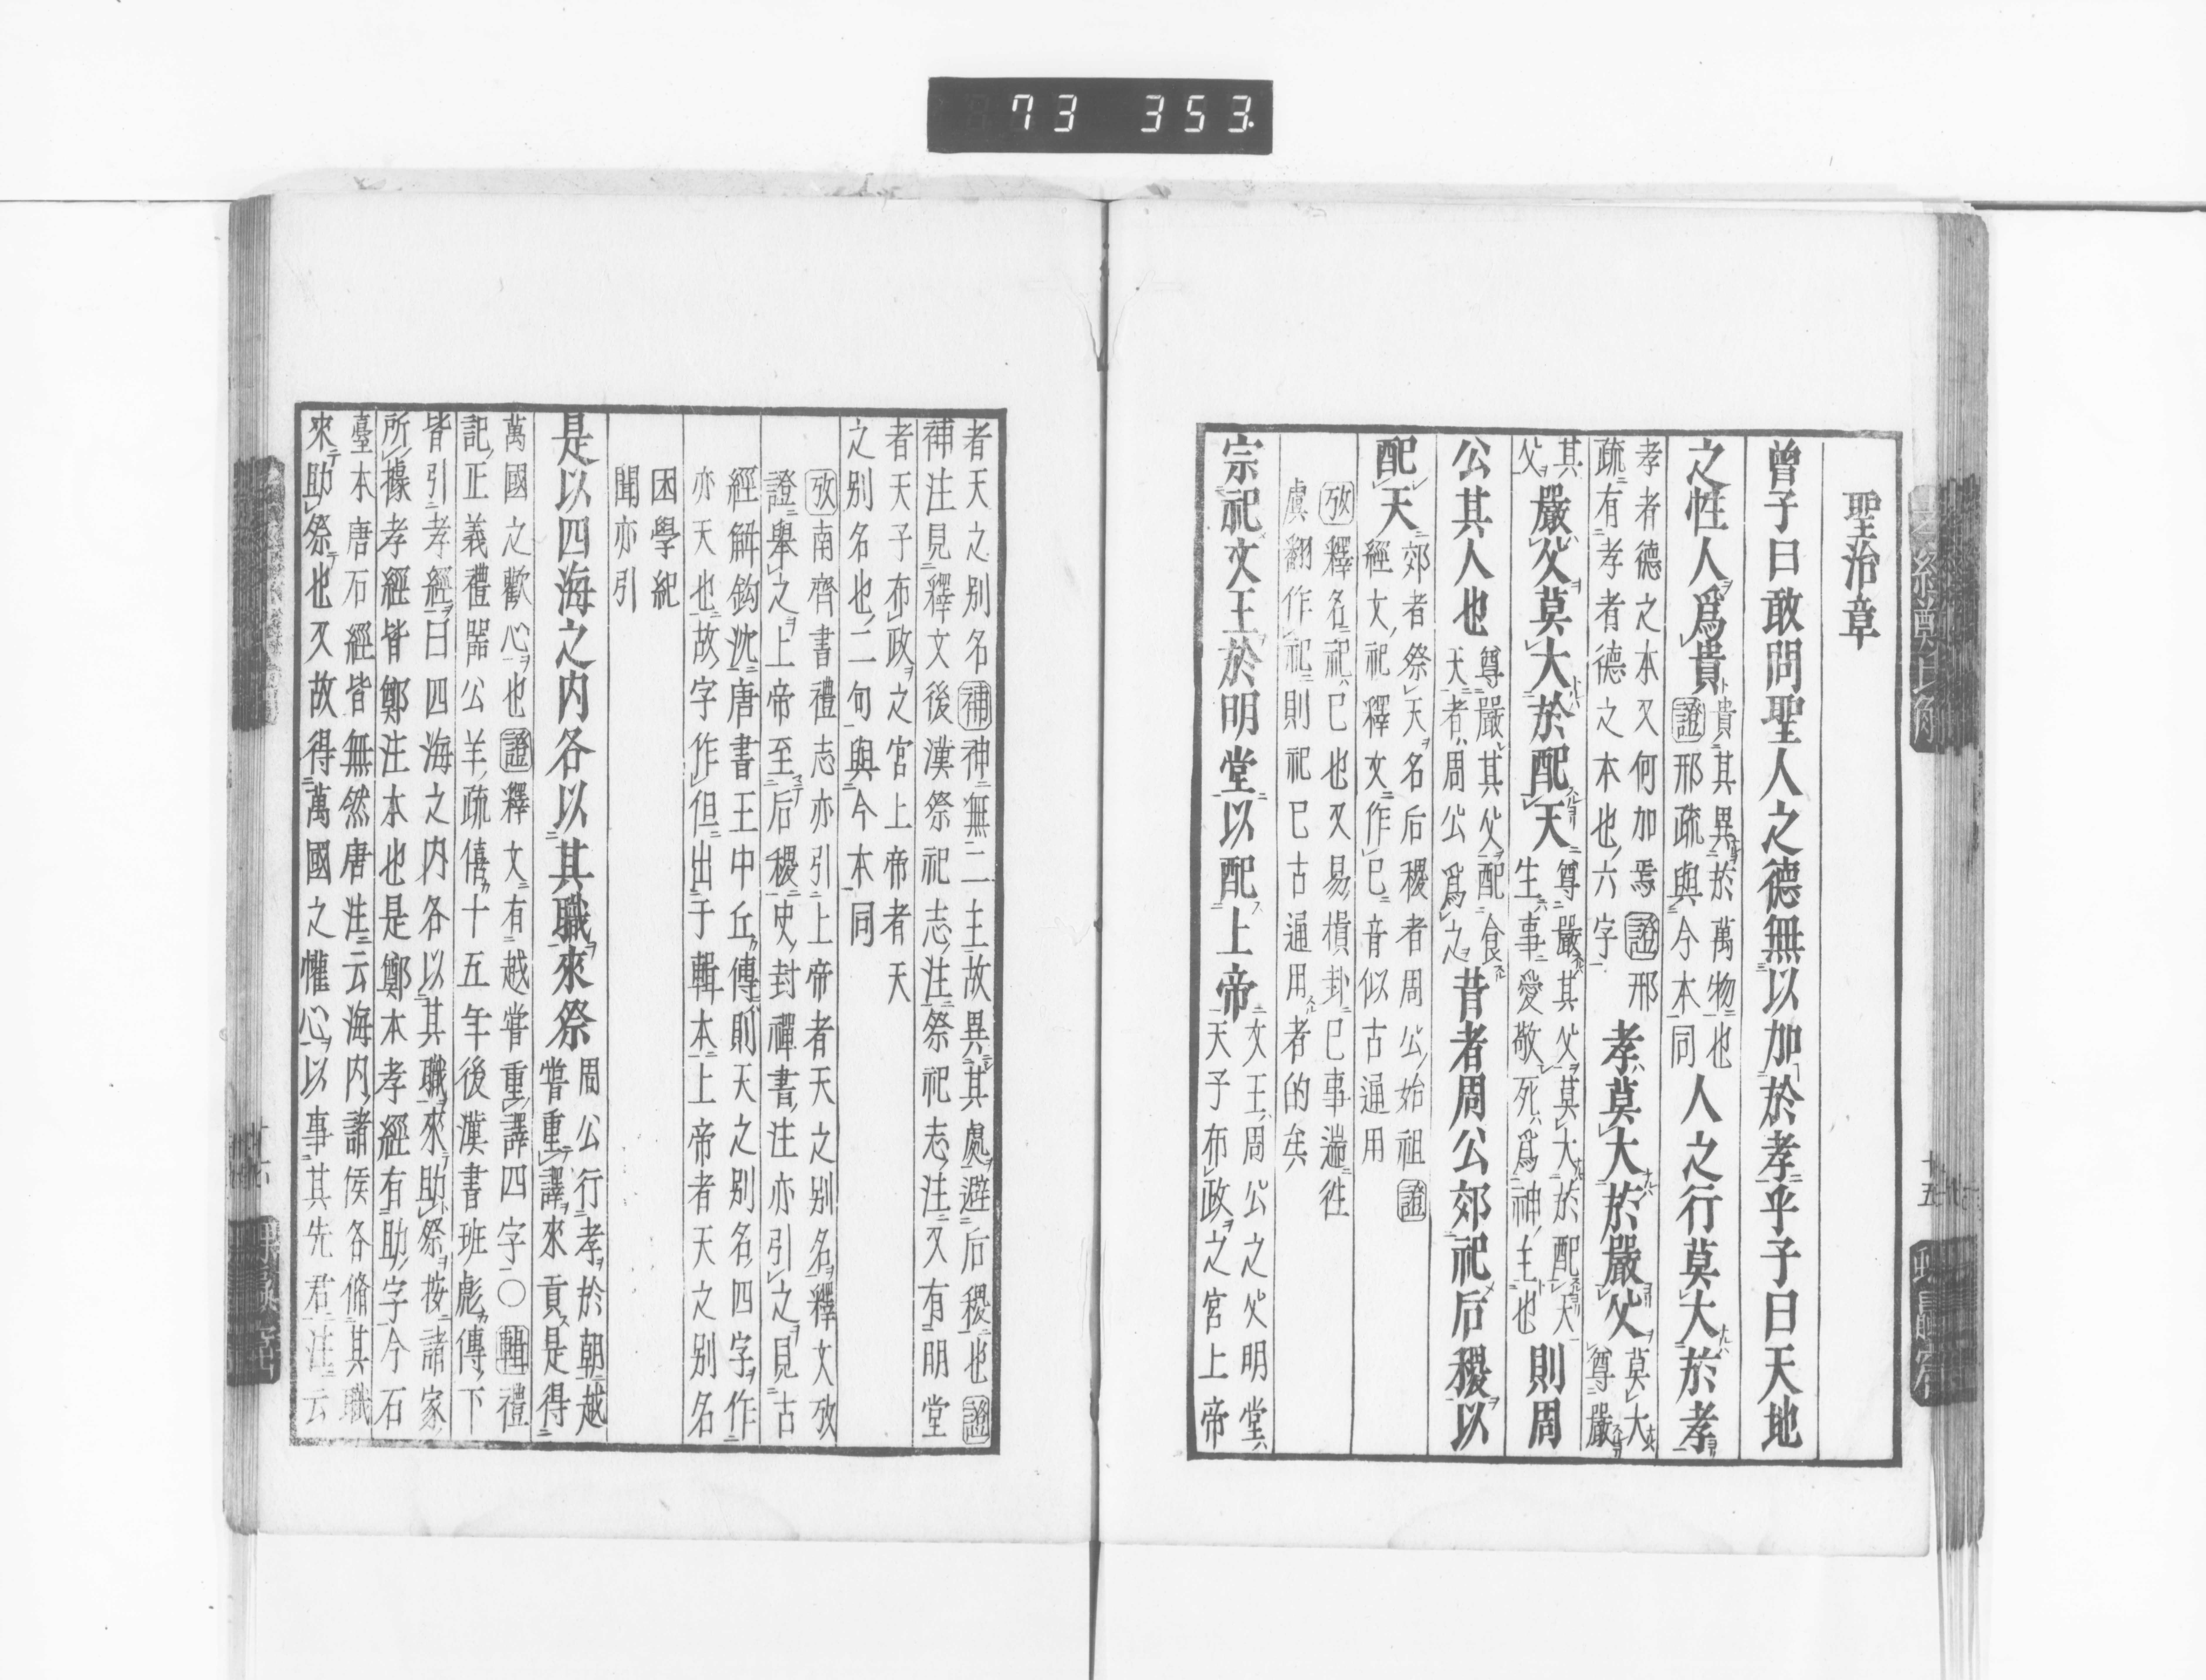 聖治章
曾子曰敢問聖人之德無以加於孝乎子曰天地
之性人爲貴貴其異於萬物也證邢疏與今本同人之行莫大於孝
孝者德之本又何加焉證邢疏有孝者德之本也六字孝莫大於嚴父莫大尊嚴
其父嚴父莫大於配天尊嚴其父莫大於配天生事愛敬死爲神主也則周
公其人也尊嚴其父配食天者周公爲之昔者周公郊祀后稷以
配天郊者祭天名后稷者周公始祖證經文祀釋文作巳音似古通用
攷釋名祀巳也又易損卦巳事遄徃
虞翻作祀則祀巳古通用者的矣
宗祀文王於明堂以配上帝文王周公之父明堂天子布政之宮上帝
十五
者天之別名補神無二主故異其處避后稷也證
補注見釋文後漢祭祀志注祭祀志注又有明堂
者天子布政之宮上帝者天
之別名也二句與今本同
攷南齊書禮志亦引上帝者天之別名釋文攷
證舉之上帝至后稷史封禪書注亦引之見古
經解鈎沈唐書王中丘傳則天之別名四字作
亦天也故字作但出于輯本上帝者天之別名
困學紀
聞亦引
是以四海之内各以其職來祭周公行孝於朝越甞重譯來貢是得
萬國之歡心也證釋文有越甞重譯四字〇輯禮
記正義禮器公羊疏僖十五年後漢書班彪傳下
皆引孝經曰四海之内各以其職來助祭按諸家
所據孝經皆鄭注本也是鄭本孝經有助字今石
臺本唐石經皆無然唐注云海内諸侯各脩其職
來助祭也又故得萬國之懽心以事其先君注云
73 353.